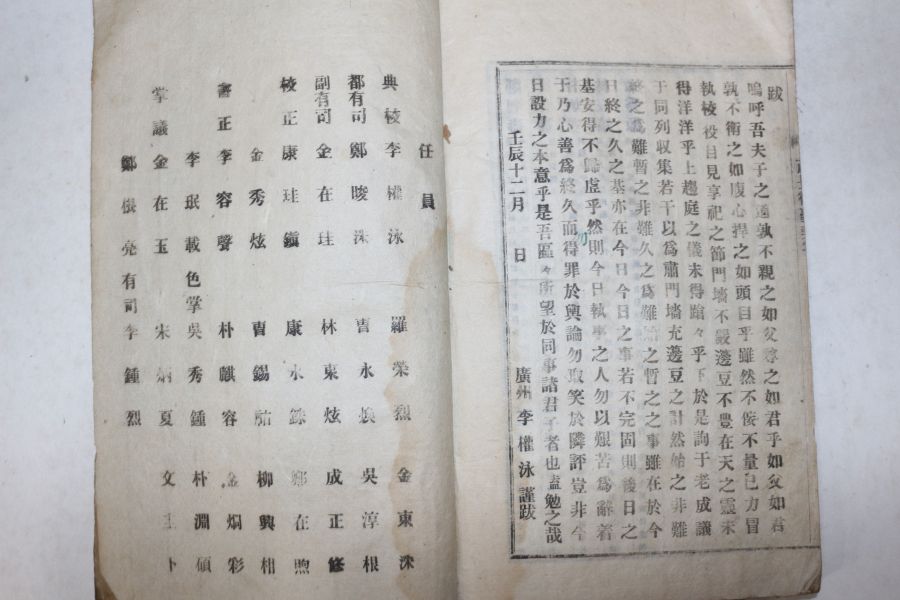 跋
嗚呼吾夫子之道孰不親之如父尊之如君乎如父如君
孰不衛之如腹心捍之如頭目乎雖然不佞不量己力冒
執校役目見享祀之節門墻不嚴邊豆不豊在天之靈未
得洋洋乎上趨庭之儀未得蹌々乎下於是詢于老成議
于同列収集若干以爲肅門墻充邊豆之計然始之非難
終之爲難暫之非難久之爲難始之暫之之事雖在於今
日終之久之基亦在今日今日之事若不完固則後日之
基安得不歸虛乎然則今日執事之人勿以艱苦爲辭着
于乃心善爲終久而得罪於輿論勿取笑於隣評豈非今
日設力之本意乎是吾區々所望於同事諸君子者也盍勉之哉
壬辰十二月 日 廣州李權泳謹跋
任員
典校李權泳 羅榮烈 金東洙
都有司鄭晙洙 曺永煥 吳淳根
副有司金在珪 林東炫 成正修
校正康珪鎭 康永錄 鄭在煦
金秀炫 曺錫 柳興相
書正李容馨 朴麒容 金炯彩
李珉載色掌吳秀鍾 朴淵碩
掌議金在玉 宋炳夏 文
鄭張亮有司李鍾烈